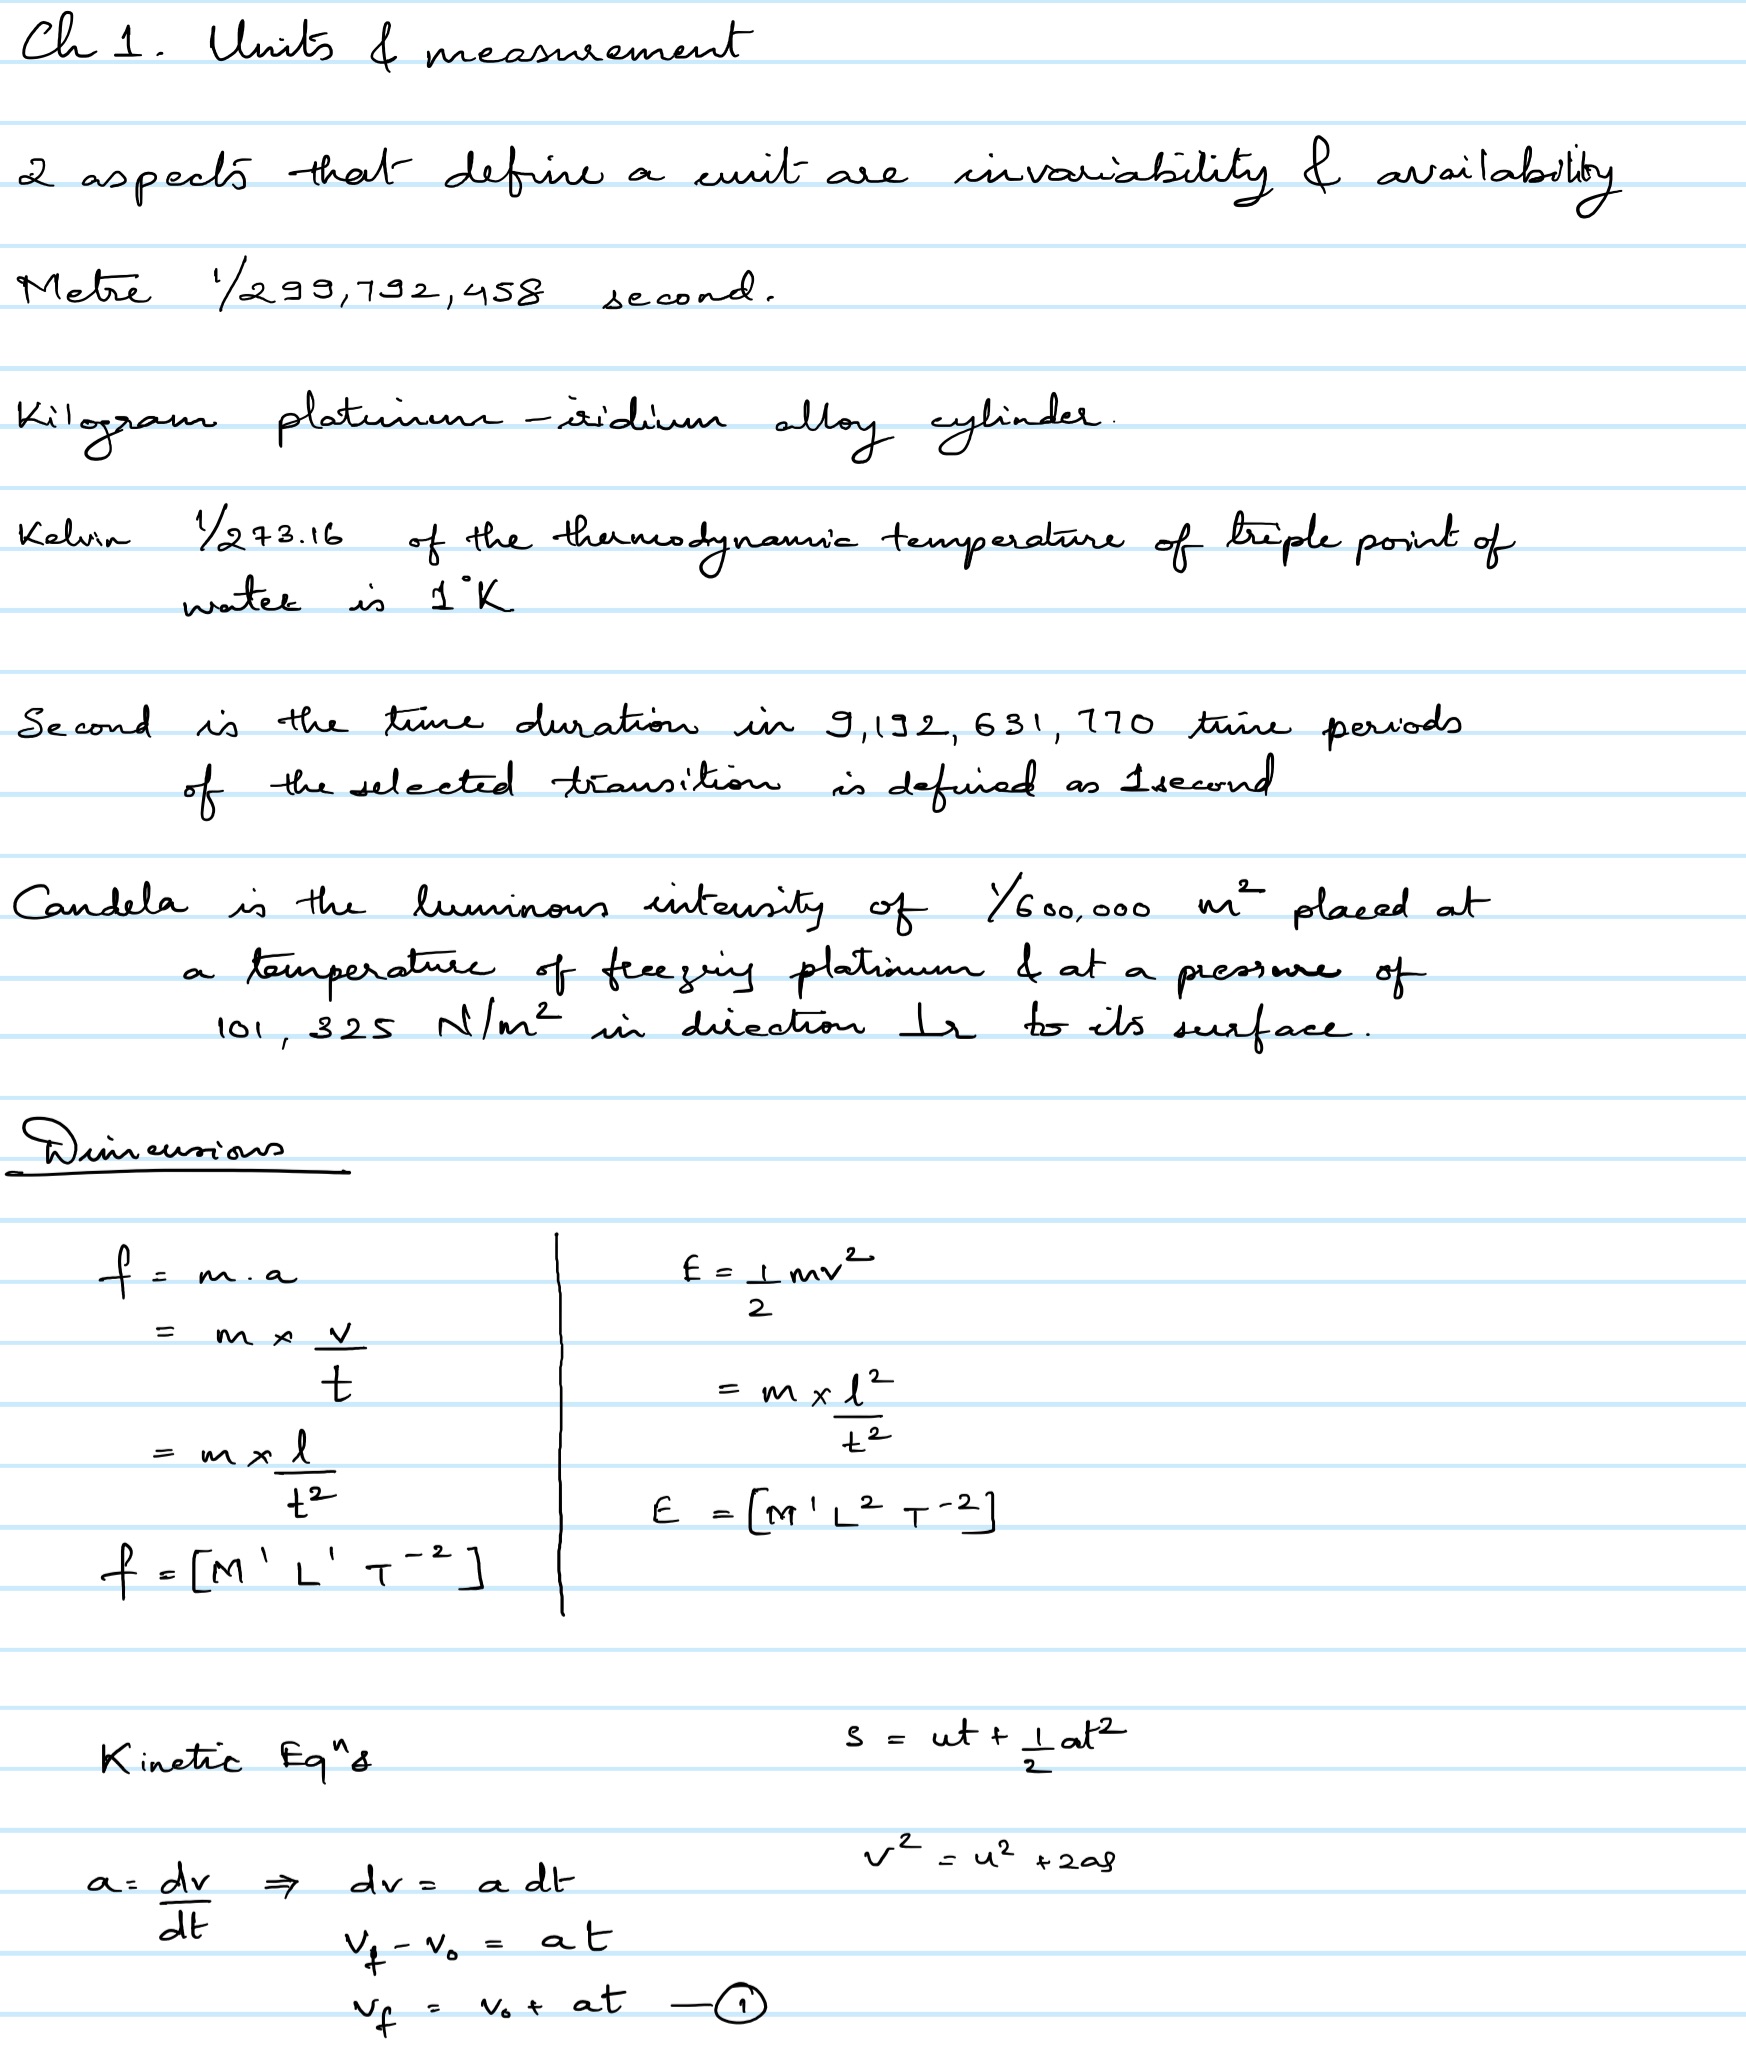 Ch 1. Units & measurement
2 aspects that define a unit are invariability & availability
Metre 1/299,792,458 second.
Kilogram platinum - iridium alloy cylinder.
Kelvin 1/273.16 of the thermodynamic temperature of triple point of
water is 1°K
Second is the time duration in 9,192,631,770 time periods
of the selected transition is defined as 1 second
Candela is the luminous intensity of 1/600,000 m² placed at
a temperature of freezing platinum & at a pressure of
101,325 N/m² in direction ⊥r to its surface.
Dimensions
f = m.a
= m × v/t
= m × l/t²
f = [M¹ L¹ T⁻²]
E = 1/2 mv²
= m × l²/t²
E = [M¹ L² T⁻²]
Kinetic Eqⁿs
s = ut + 1/2 at²
v² = u² + 2as
a = dv/dt ⇒ dv = a dt
v_f - v₀ = at
v_f = v₀ + at — ①